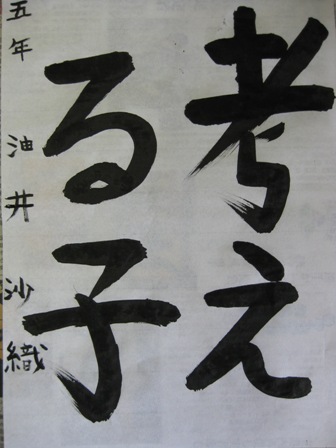 考え
る子
五年 油井 沙織